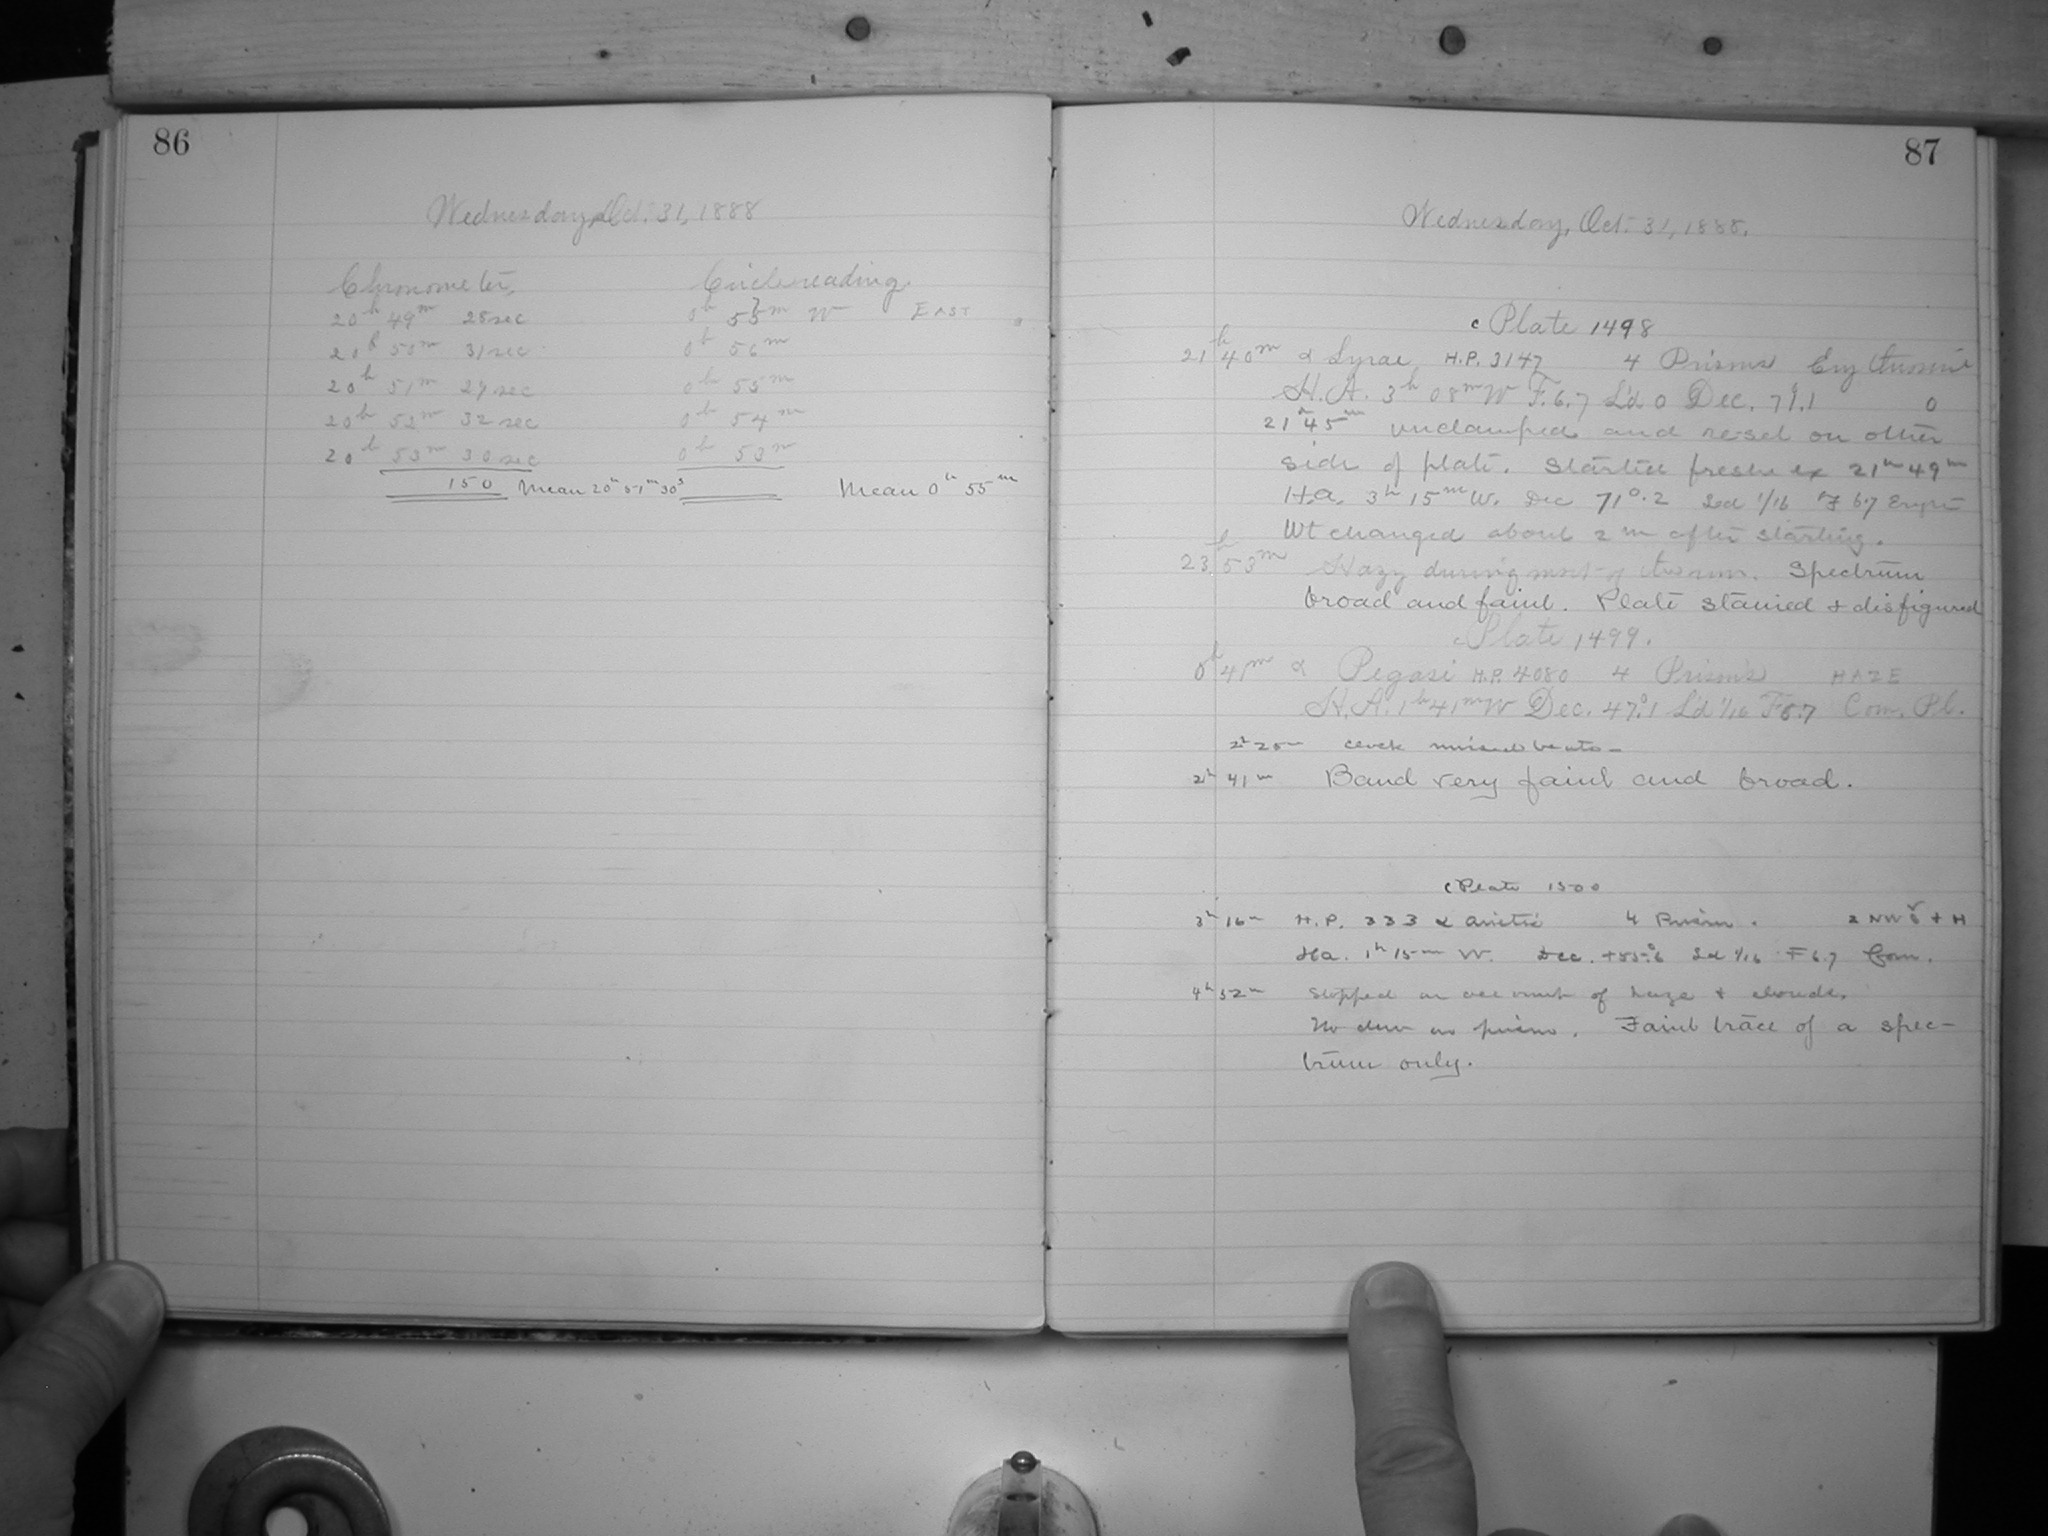 86
Wednesday, Oct. 31, 1888
Chronometer. Circle reading.
20h 49m 28sec 0h 55m W EAST
20h 50m 31sec 0h 56m
20h 51m 29sec 0h 55m
20h 52m 32sec 0h 54m
20h 53m 30sec 0h 53m
150 Mean 20h 51m 30s Mean 0h 55m
87
Wednesday, Oct. 31, 1888.
c Plate 1498
21h 40m α Lyrae H.P. 3147 4 Prisms Erythrosine
H.A. 3h 08m W F. 6.7 L'd 0 Dec. 71°.1 0
21h 45m unclamped and re-set on other
side of plate. Started fresh ex 21h 49m
H.a. 3h 15m W. Dec 71°.2 Led 1/16 F 6.7
Wt changed about 2m after starting.
23h 53m Hazy during most of the run. Spectrum
broad and faint. Plate stained + disfigured
c Plate 1499.
0h 41m α Pegasi H.P. 4080 4 Prisms HAZE
H.A. 1h 41m W Dec. 47°.1 L'd 1/16 F 6.7 Com. Pl.
2h 25m clock missed beats—
2h 41m Band very faint and broad.
c Plate 1500
3h 16m H.P. 333 α Arietis 4 Prism. 2 NW + H
Ha. 1h 15m W. Dec. +55°.6 Led 1/16 F 6.7 Com.
4h 52m Stopped on account of haze + clouds.
No dew on prism. Faint trace of a spec-
trum only.